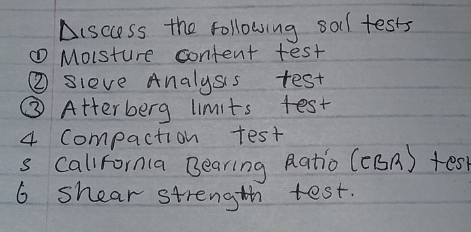 Discuss the following soil tests
① Moisture content test
② Sieve Analysis test
③ Atterberg limits test
4 Compaction test
5 California Bearing Ratio (CBR) test
6 Shear strength test.